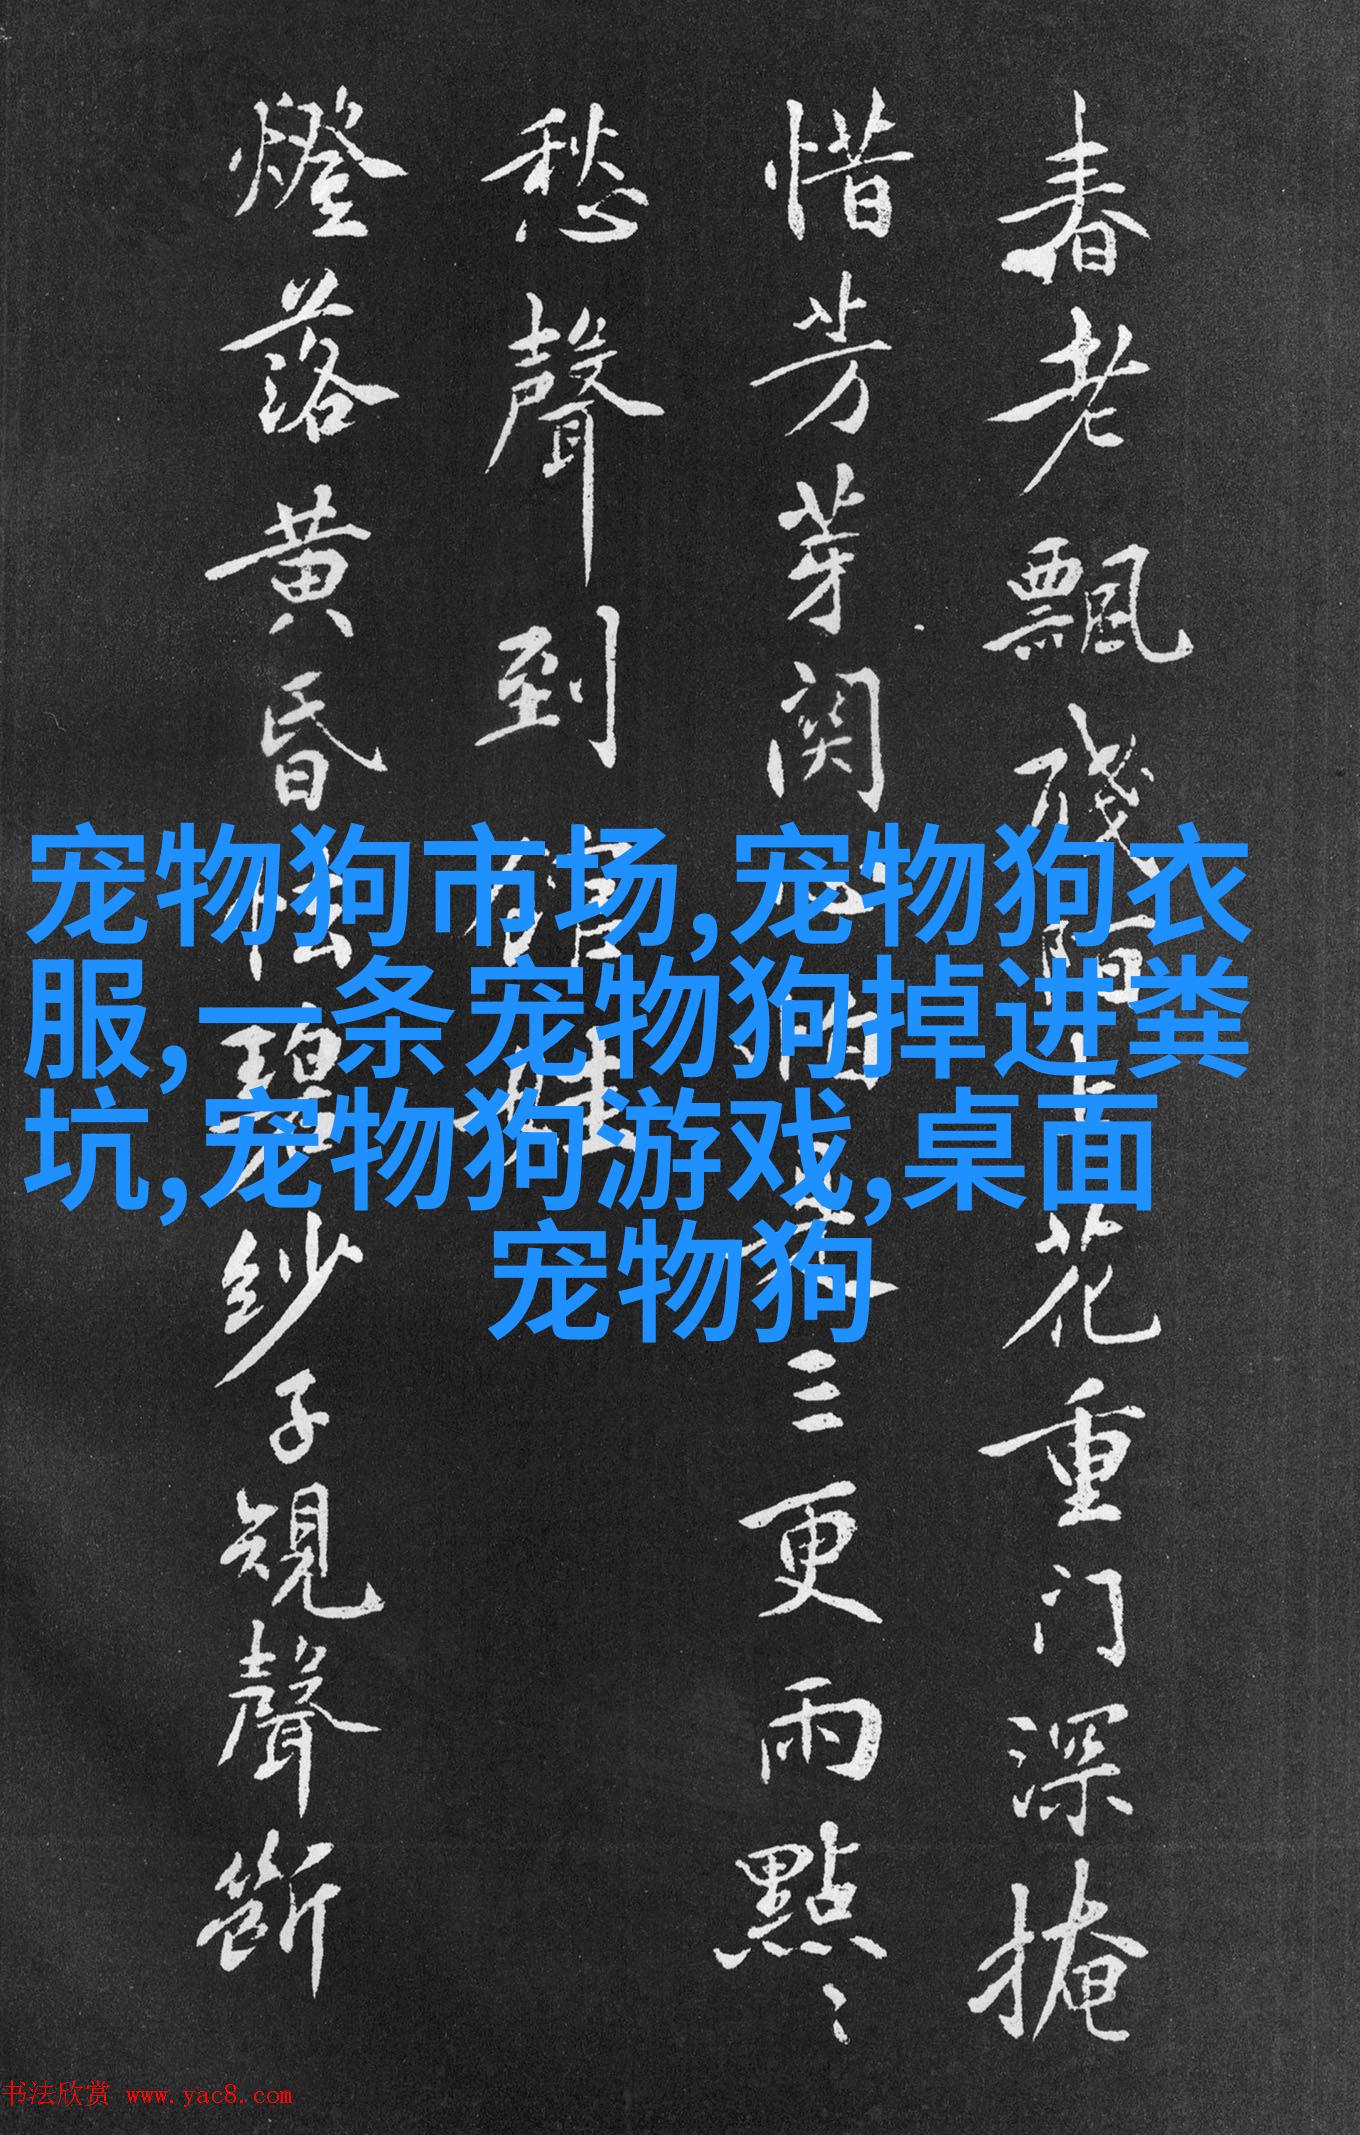 春老飄殘上花重门深掩
惜芳芽関三更雨點〻
愁聲到館娃
燈落黄昏碧紗子規聲斷
宠物狗市场,宠物狗衣
服,一条宠物狗掉进粪
坑,宠物狗游戏,桌面
宠物狗
书法欣赏 www.yac8.com